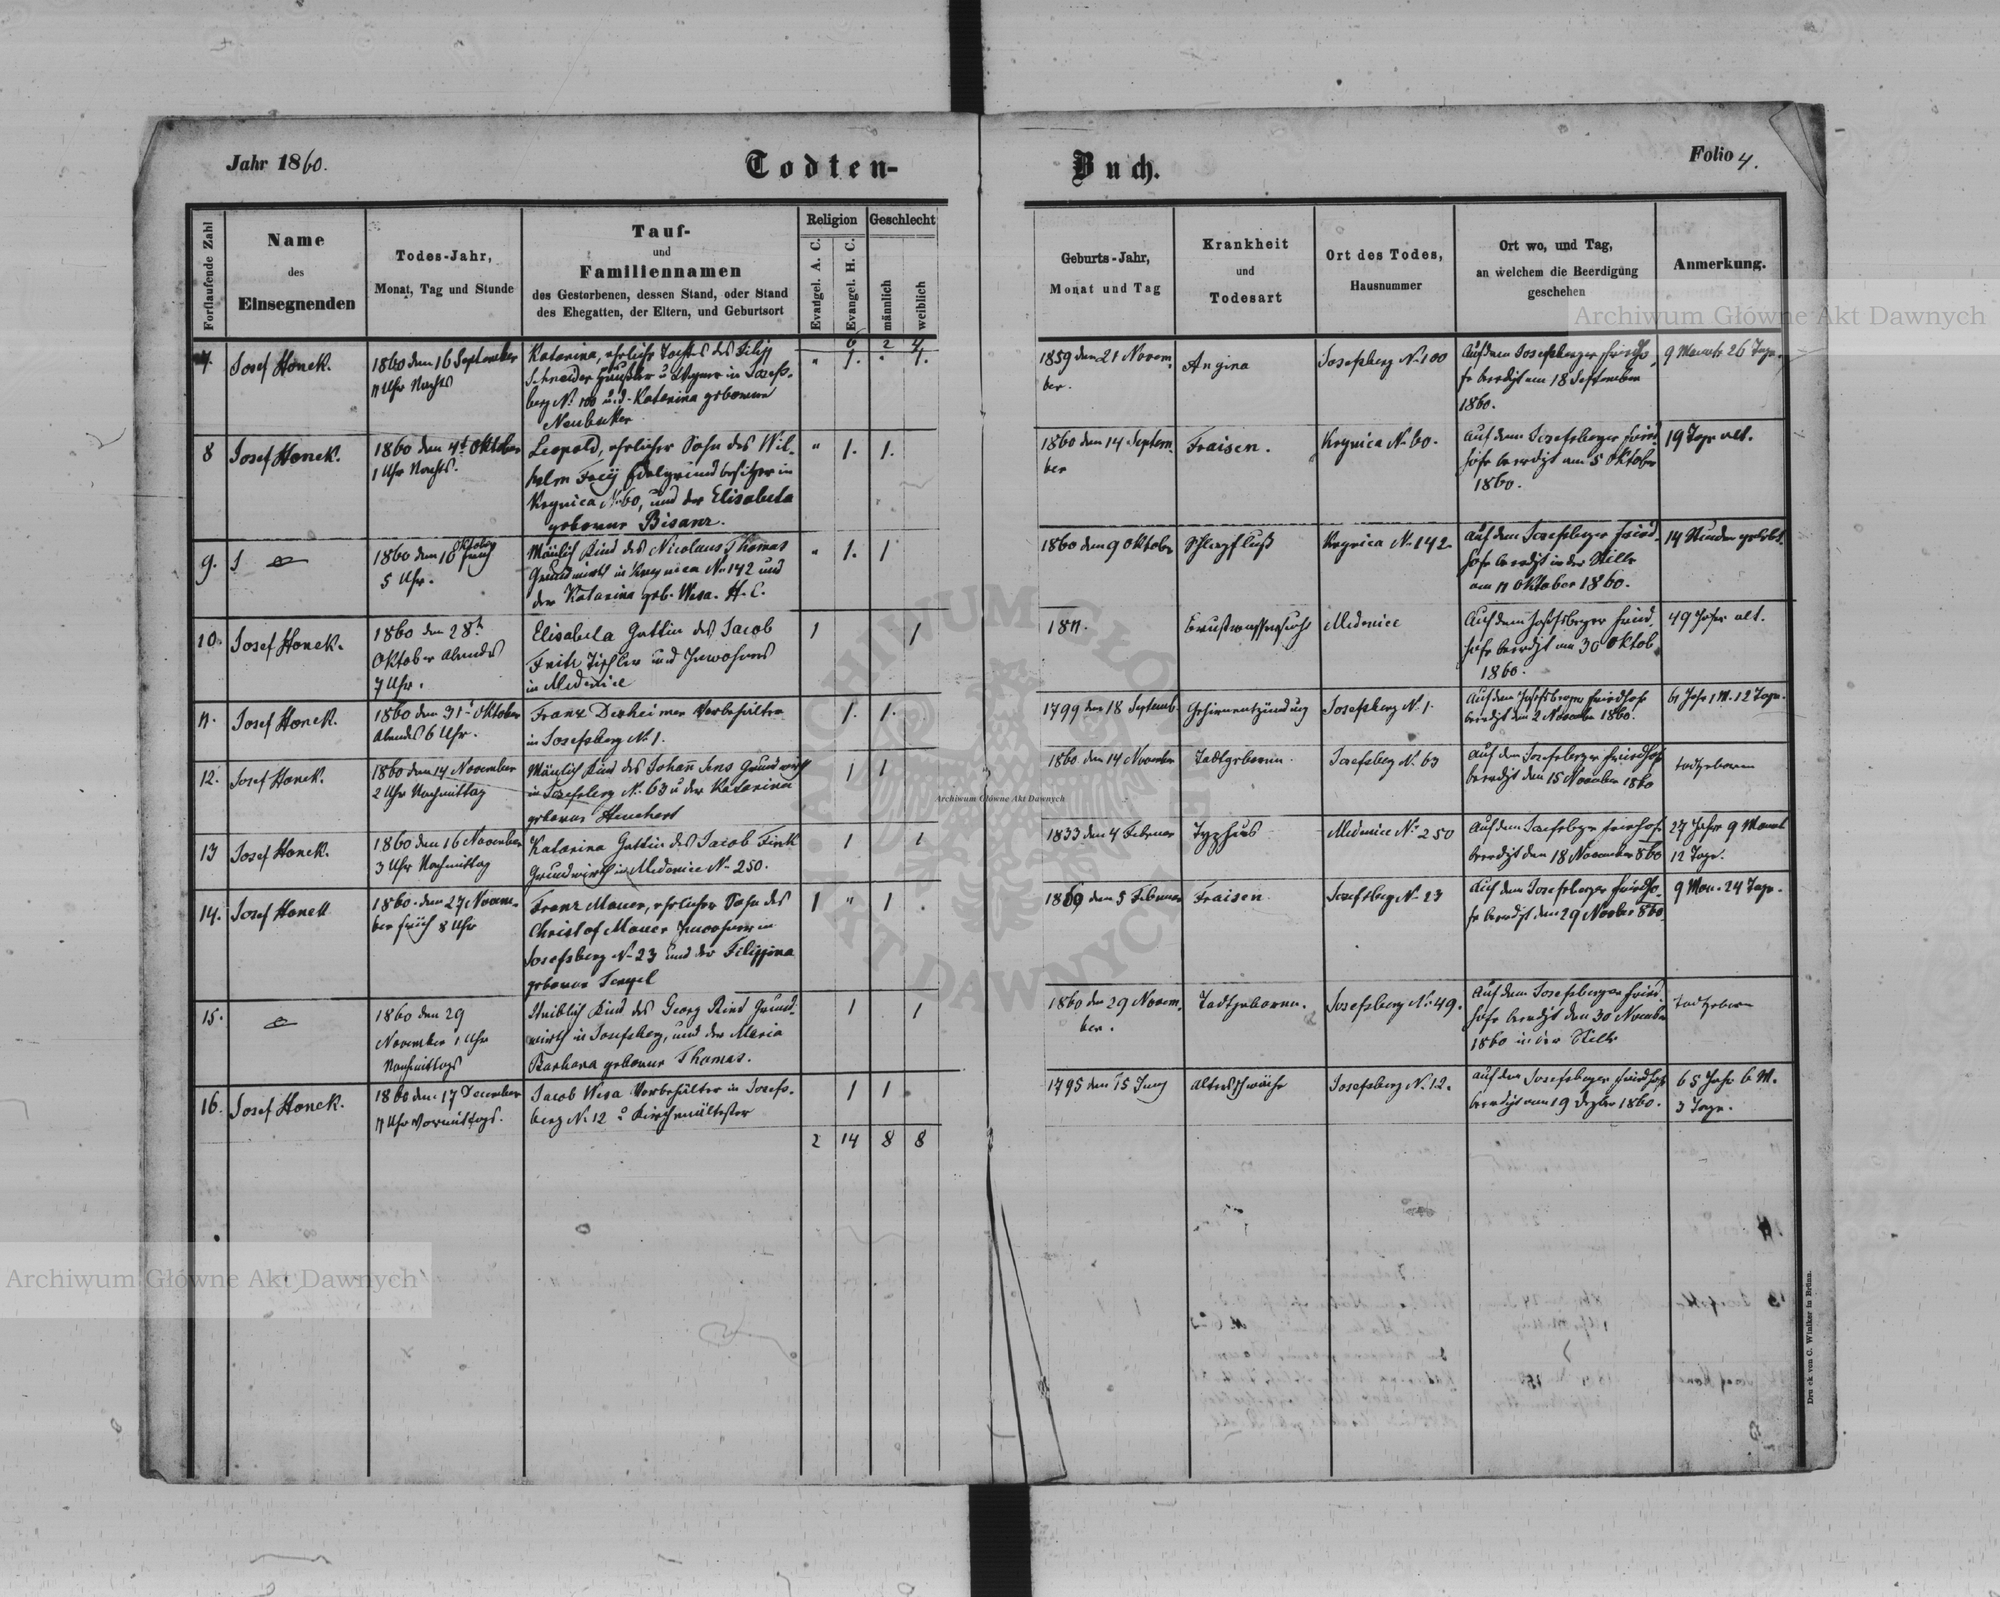 Jahr 1860.
Todten-
Buch.
Folio 4.
Fortlaufende Zahl
Name
des
Einsegnenden
Todes-Jahr,
Monat, Tag und Stunde
Tauf-
und
Familiennamen
des Gestorbenen, dessen Stand, oder Stand
des Ehegatten, der Eltern, und Geburtsort
Religion
Evangel. A. C.
Evangel. H. C.
Geschlecht
männlich
weiblich
Geburts-Jahr,
Monat und Tag
Krankheit
und
Todesart
Ort des Todes,
Hausnummer
Ort wo, und Tag,
an welchem die Beerdigung
geschehen
Anmerkung.
6 2 4
7. Josef Honek.
1860 den 16 September
11 Uhr Nachts
Katarina, ehrliche Tochter des Filip
Schneider Häusler u Wagner in Josefs-
berg No. 100 und Katarina geborene
Neubecker
" 1. " 1.
1859 den 21 Novem-
ber.
Angina
Josefsberg No 100
Auf dem Josefsberger Friedho-
fe beerdigt am 18 September
1860.
9 Monate 26 Tage.
8 Josef Honek.
1860 den 4t Oktober
1 Uhr Nachts.
Leopold, ehrlicher Sohn des Wil-
helm Grundbesitzer in
Krynica No 60, und der Elisabeta
geborene Bisanz.
" 1. 1.
1860 den 14 Septem-
ber
Fraisen.
Krynica No 60.
Auf dem Josefsberger Fried-
hofe beerdigt am 5 Oktober
1860.
19 Tage alt.
9. J
1860 den 10 Oktober früh
5 Uhr.
Mänlich Kind des Nicolaus Thomas
Grundwirth in Krynica No 142 und
der Katarina geb. Wesa. H. C.
" 1. 1
1860 den 9 Oktober
Schlagfluß
Krynica No 142
Auf dem Josefsberger Fried-
hofe beerdigt in der Stille
am 11 Oktober 1860.
14 Stunden gelebt.
10. Josef Honek.
1860 den 28t
Oktober Abends
7 Uhr.
Elisabeta Gattin des Jacob
Fritz Tischler und Inwohners
in Medenice
1 1
1811.
Brustwassersucht
Medenice
Auf dem Josefsberger Fried-
hofe beerdigt am 30 Oktob
1860.
49 Jahre alt.
11. Josef Honek.
1860 den 31t Oktober
Abends 6 Uhr.
Franz Dexheimer Vorbehälter
in Josefsberg No 1.
1. 1.
1799 den 18 Septemb.
Gehirnentzündung
Josefsberg No 1.
Auf dem Josefsberger Friedhofe
beerdigt den 2 November 1860.
61 Jahr 1 M. 12 Tage.
12. Josef Honek.
1860 den 14 November
2 Uhr Nachmittag
Mänlich Kind des Johann Jens Grundwirth
in Josefsberg No 63 u der Katarina
geborene
1 1
1860 den 14 November
Todtgeboren.
Josefsberg No 63
Auf dem Josefsberger Friedhofe
beerdigt den 15 November 1860
todtgeboren
13 Josef Honek.
1860 den 16 November
3 Uhr Nachmittag
Katarina Gattin des Jacob Fink
Grundwirth in Medenice No 250.
1 1
1833 den 4 Februar
Typhus
Medenice No 250
Auf dem Josefsberger Friedhofe
beerdigt den 18 November 860
27 Jahre 9 Monat
12 Tage.
14. Josef Honek
1860 den 27 Novem-
ber früh 8 Uhr
Franz Mauer, ehrlicher Sohn des
Christof Mauer Inwohner in
Josefsberg No 23 und der Filippina
geborene
1 " 1 .
1860 den 5 Februar
Fraisen
Josefsberg No 23
Auf dem Josefsberger Friedho-
fe beerdigt den 29 November 860
9 Mon. 24 Tage.
15.
1860 den 29
November 1 Uhr
Nachmittags
Weiblich Kind des Georg Ried Grund-
wirth in Josefsberg, und der Maria
Barbara geborene Thomas.
1 1
1860 den 29 Novem-
ber.
Todtgeboren.
Josefsberg No 49.
Auf dem Josefsberger Fried-
hofe beerdigt den 30 November
1860 in der Stille
Todtgeboren
16. Josef Honek.
1860 den 17 December
11 Uhr Vormittags.
Jacob Wesa Vorbehälter in Josefs-
berg No 12 u Kirchenältester
1 1
1795 den 15 Juny
Altersschwäche
Josefsberg No 12.
auf dem Josefsberger Friedhofe
beerdigt am 19 Dezber 1860.
65 Jahr 6 M.
3 Tage.
2 14 8 8
Druck von C. Winiker in Brünn.
Archiwum Główne Akt Dawnych
Archiwum Główne Akt Dawnych
Archiwum Główne Akt Dawnych
ARCHIWUM GŁÓWNE AKT DAWNYCH